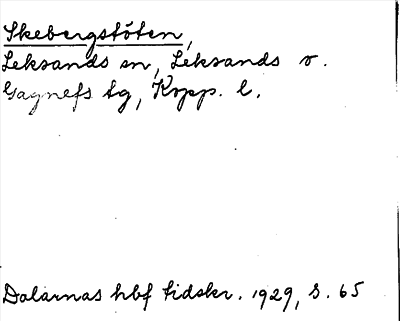 Skebergstöten,
Leksands sn, Leksands v.
Gagnefs tg, Kopp. l.
Dalarnas hbf tidskr. 1929, s. 65